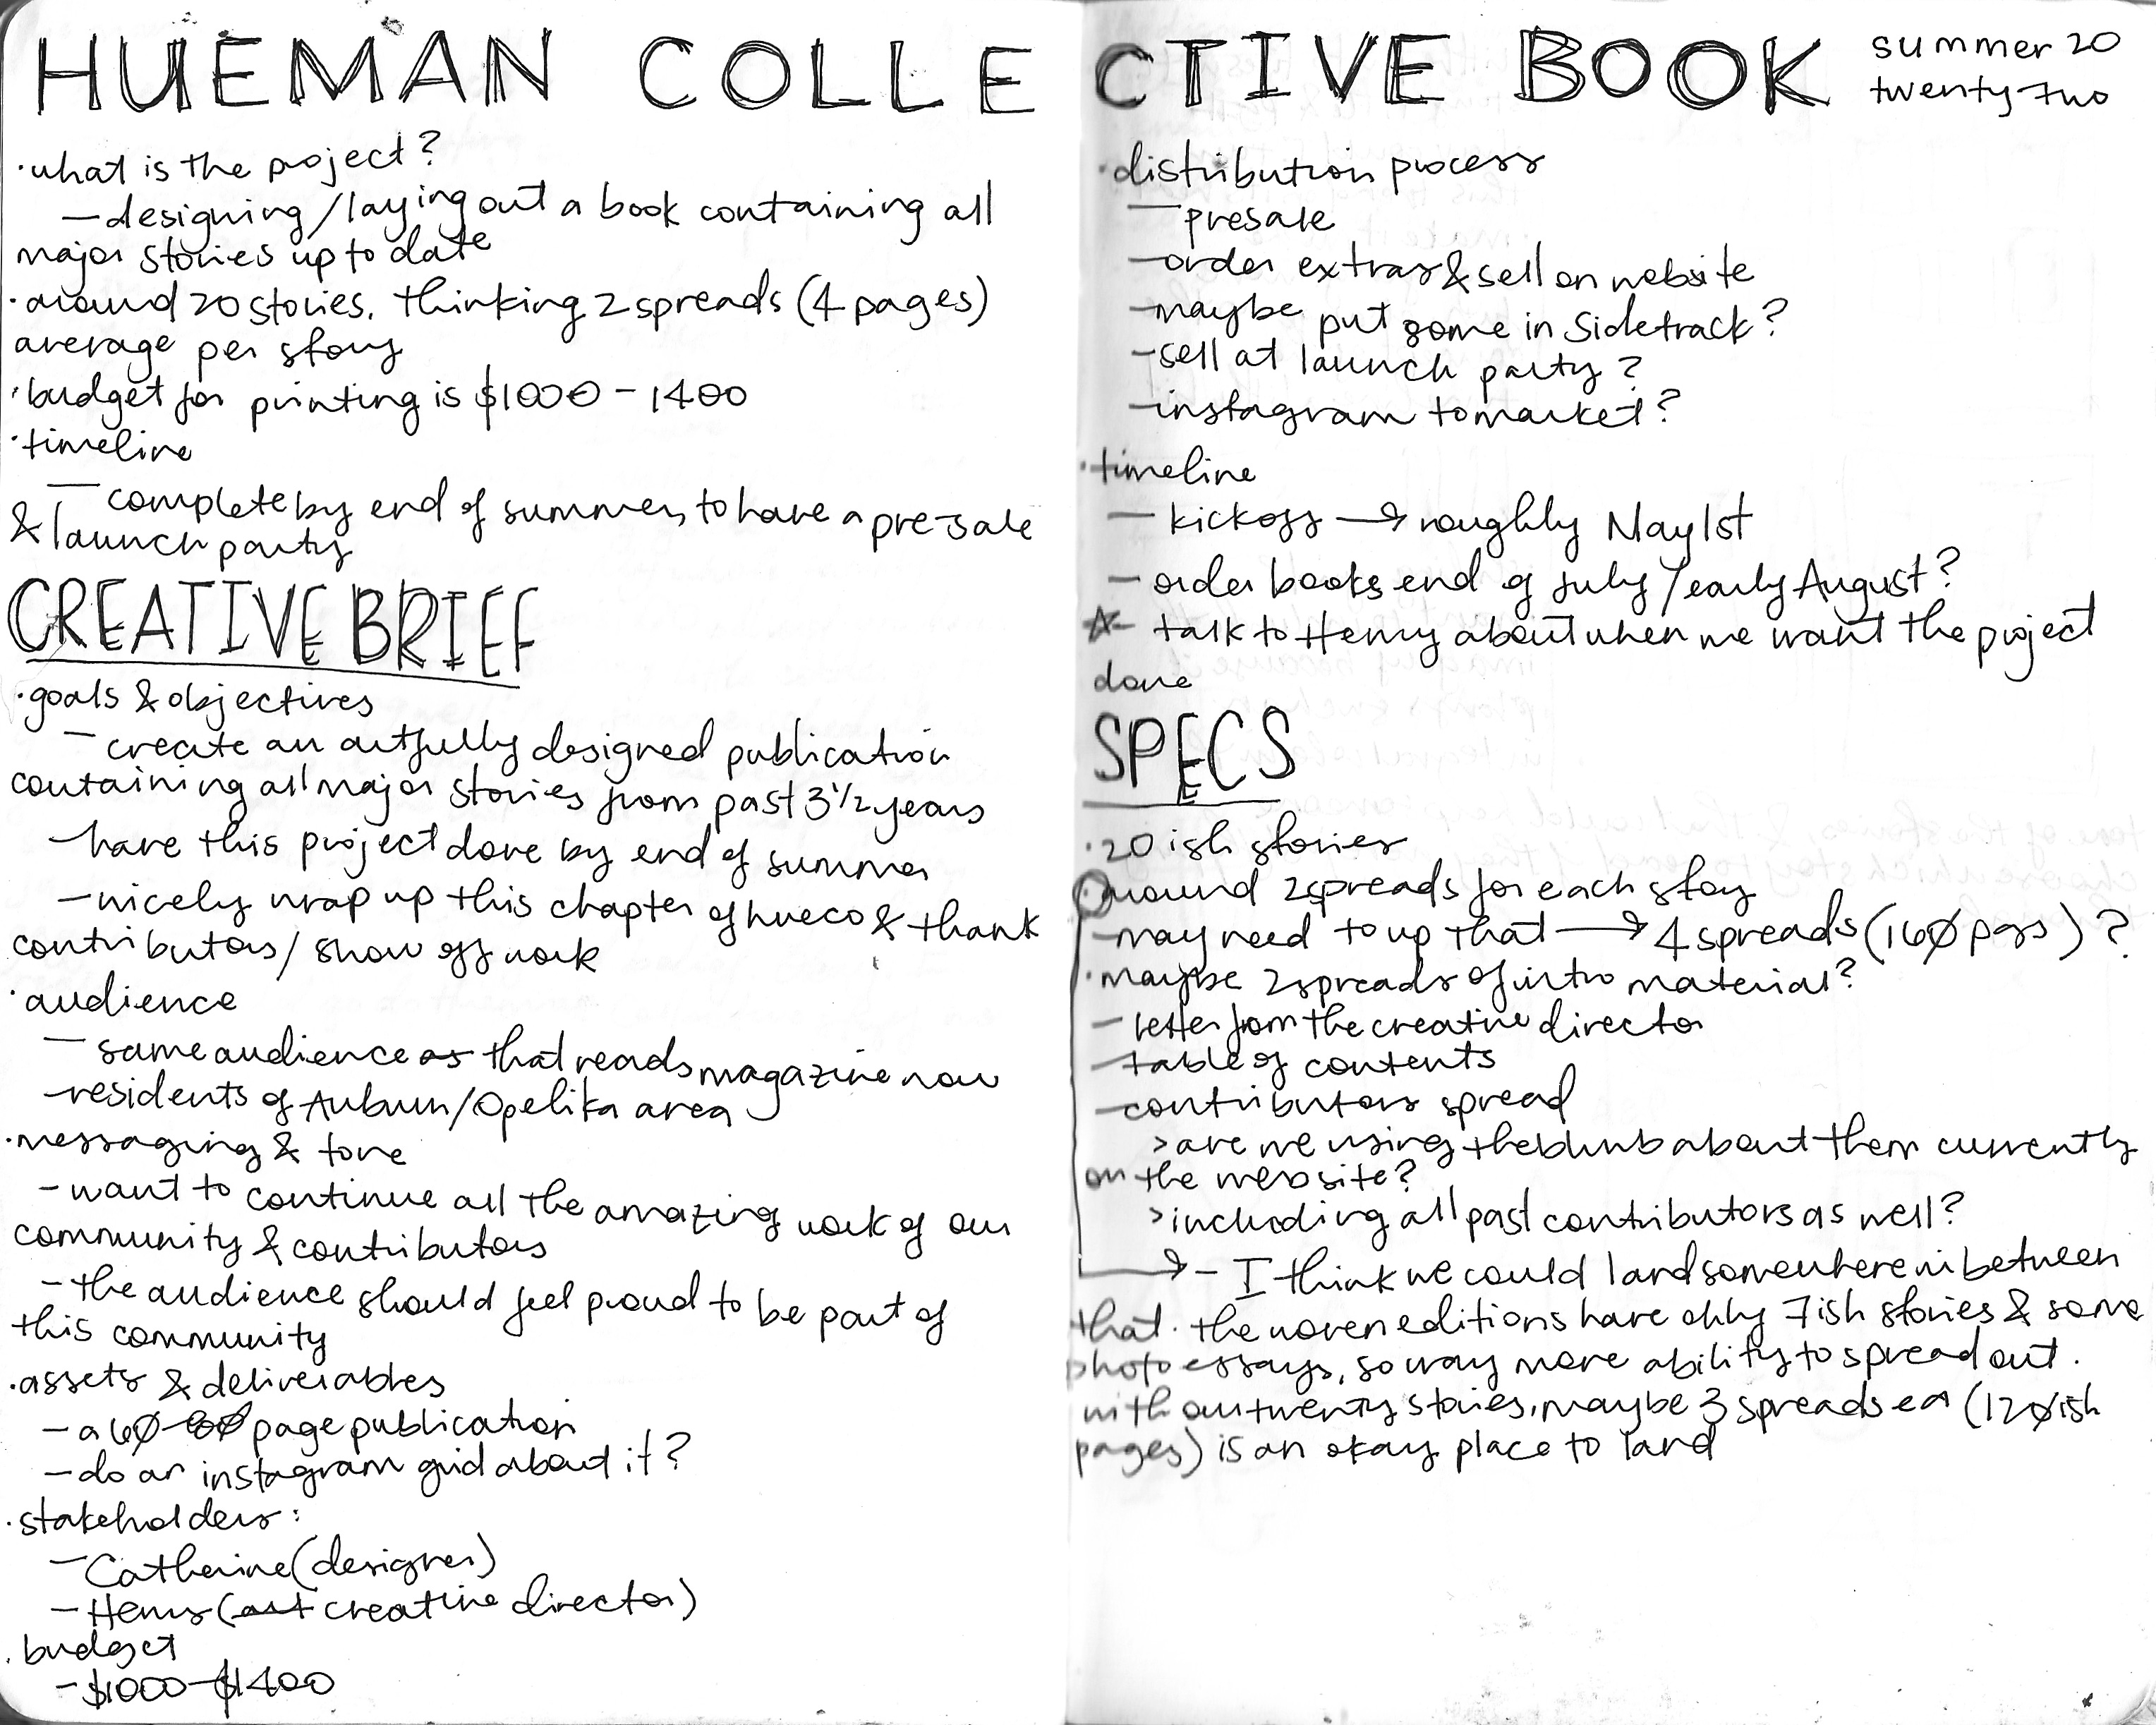 HUEMAN COLLECTIVE BOOK
summer 20
twenty-two
·what is the project?
—designing/laying out a book containing all
major stories up to date
·around 20 stories. thinking 2 spreads (4 pages)
average per story
·budget for printing is $1000 - 1400
·timeline
— complete by end of summer, to have a pre-sale
& launch party
CREATIVE BRIEF
·goals & objectives
— create an artfully designed publication
containing all major stories from past 3 1/2 years
—have this project done by end of summer
—nicely wrap up this chapter of hueco & thank
contributors/ show off work
·audience
— same audience as that reads magazine now
—residents of Auburn/Opelika area
·messaging & tone
—want to continue all the amazing work of our
community & contributors
—the audience should feel proud to be part of
this community
·assets & deliverables
—a 60-80 page publication
—do an instagram grid about it?
·stakeholders:
—Catherine (designer)
—Henry (art creative director)
·budget
—$1000-$1400
·distribution process
—presale
—order extras & sell on website
—maybe put some in Sidetrack?
—sell at launch party?
—instagram to market?
·timeline
— kickoff → roughly May 1st
— order books end of july/early August?
☆— talk to Henry about when we want the project
done
SPECS
·20 ish stories
·around 2 spreads for each story
—may need to up that → 4 spreads (160 pgs)?
·maybe 2 spreads of intro material?
— letter from the creative director
—table of contents
—contributors spread
>are we using the blurb about them currently
on the website?
>including all past contributors as well?
→ - I think we could land somewhere in between
that. the woven editions have only 7ish stories & some
photo essays, so way more ability to spread out.
with our twenty stories, maybe 3 spreads ea (120ish
pages) is an okay place to land